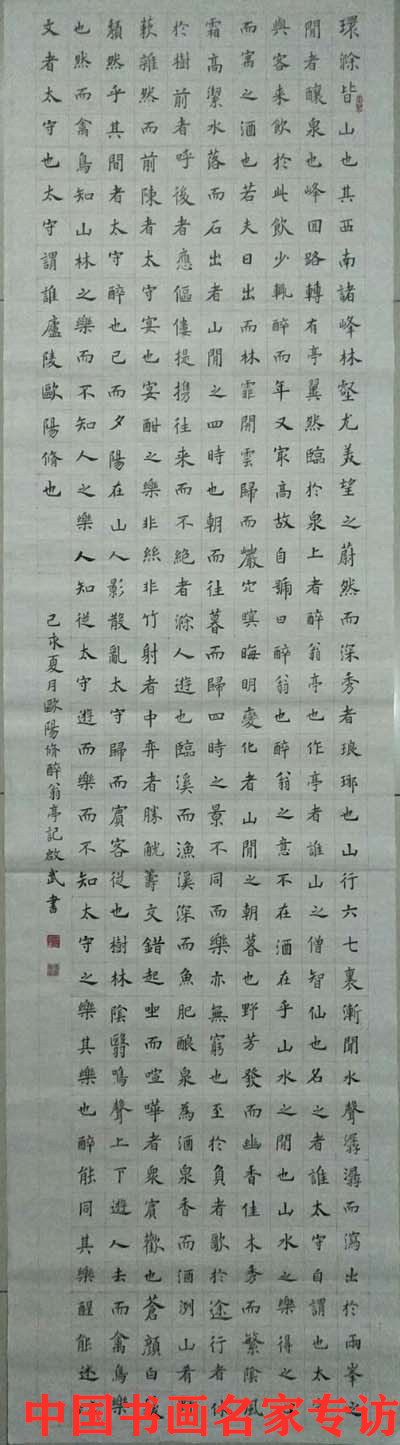 環滁皆山也其西南諸峰林壑尤美望之蔚然而深秀者琅琊也山行六七裏漸聞水聲潺潺而瀉出於兩峯之
閒者釀泉也峰回路轉有亭翼然臨於泉上者醉翁亭也作亭者誰山之僧智仙也名之者誰太守自謂也太
與客來飲於此飲少輒醉而年又冣高故自號曰醉翁也醉翁之意不在酒在乎山水之閒也山水之樂得之
而寓之酒也若夫日出而林霏開雲歸而巖穴暝晦明變化者山閒之朝暮也野芳發而幽香佳木秀而繁陰風
霜高潔水落而石出者山閒之四時也朝而往暮而歸四時之景不同而樂亦無窮也至於負者歌於途行者休
於樹前者呼後者應傴僂提攜往来而不絕者滁人遊也臨溪而漁溪深而魚肥釀泉為酒泉香而酒洌山肴
蔌雜然而前陳者太守宴也宴酣之樂非絲非竹射者中弈者勝觥籌交錯起坐而喧嘩者衆賓歡也蒼顏白髮
頹然乎其間者太守醉也已而夕陽在山人影散亂太守歸而賓客從也樹林陰翳鳴聲上下遊人去而禽鳥樂
也然而禽鳥知山林之樂而不知人之樂人知從太守遊而樂而不知太守之樂其樂也醉能同其樂醒能述
文者太守也太守謂誰廬陵歐陽脩也
己亥夏月歐陽脩醉翁亭記啟武書
中国书画名家专访